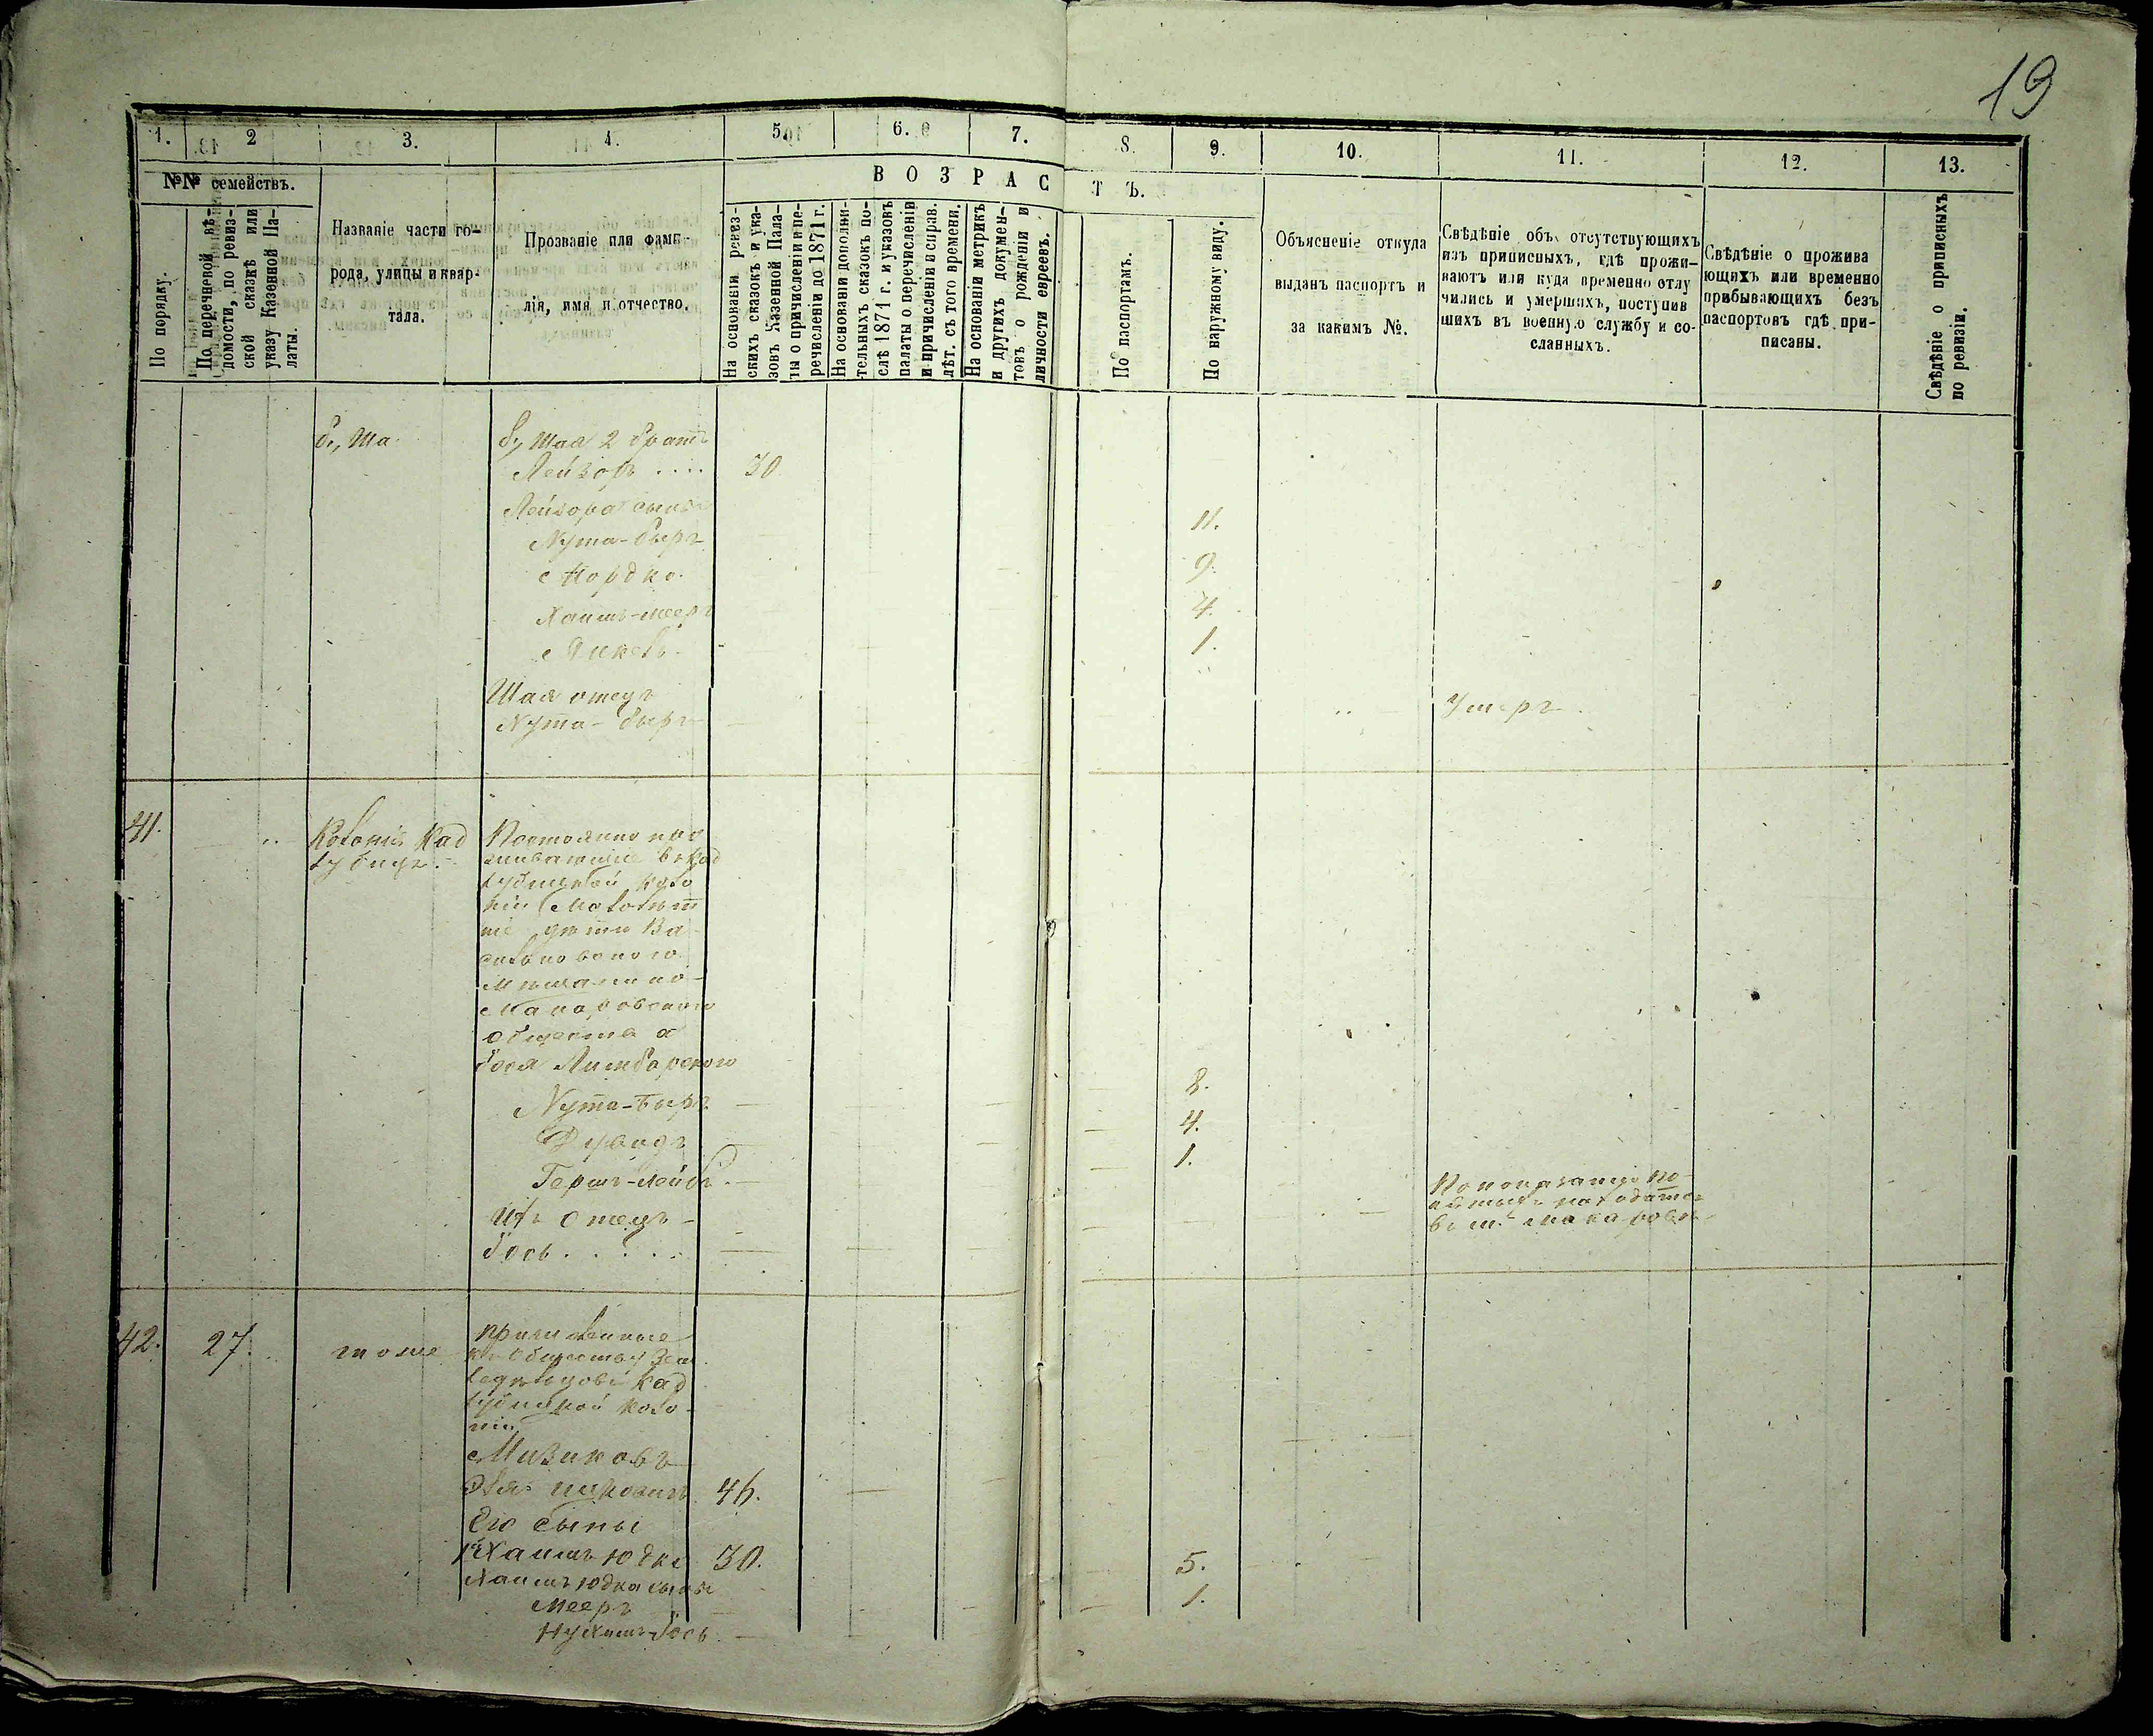 19
1. 2 3. 4. 5. 6. 7. 8. 9. 10. 11. 12. 13.
№№ семействъ.
ВОЗРАСТЪ.
По порядку.
По перечневой вѣ-
домости, по ревиз-
ской сказкѣ или
указу Казенной Па-
латы.
Названіе части го-
рода, улицы и квар-
тала.
Прозваніе или фами-
лія, имя и отчество.
На основаніи ревиз-
скихъ сказокъ и ука-
зовъ Казенной Пала-
ты о причисленіи и пе-
речисленіи до 1871 г.
На основаніи дополни-
тельныхъ сказокъ по-
слѣ 1871 г. и указовъ
палаты о перечисленіи
и причисленіи и справ.
лѣт. съ того времени.
На основаніи метрикъ
и другихъ докумен-
товъ о рожденіи и
личности евреевъ.
По паспортамъ.
По наружному виду.
Объясненіе откуда
выданъ паспортъ и
за какимъ №.
Свѣдѣніе объ отсутствующихъ
изъ приписныхъ, гдѣ прожи-
ваютъ или куда временно отлу
чились и умершихъ, поступив
шихъ въ военную службу и со-
сланныхъ.
Свѣдѣніе о прожива
ющихъ или временно
прибывающихъ безъ
паспортовъ гдѣ при-
писаны.
Свѣдѣніе о приписныхъ
по ревизіи.
Шая 2 братъ
Лейзоръ .... 30
Лейзора сыны
Нута-Беръ 11.
Мордко. 9.
Хаимъ-Мееръ 4.
Янкель 1.
Шая отецъ
Нута-беръ Умеръ
41. Колонія Кад
лубица
Постоянно про
живающіе въ Кад
лубицкой коло
ніи Малолѣт
ніе дѣти Ва
сильковского
Мѣщанина
Макаровскаго
общества
Іося Лимбарского
Нута-Беръ 8.
Дувидъ 4.
Гершъ-Лейбъ 1.
Ихъ Отецъ
Іось.....
По показанію по
находится
въ м. Макаровѣ
42. 27. тоже
Причисленные
къ Обществу Зем
ледѣльцовъ Кад
лубицкой коло
ніи
Мизиковъ
Эля 46.
Его сыны
1й Хаимъ Юдко 30.
Хаимъ Юдка сыны
Мееръ 5.
Нухимъ-Іось 1.